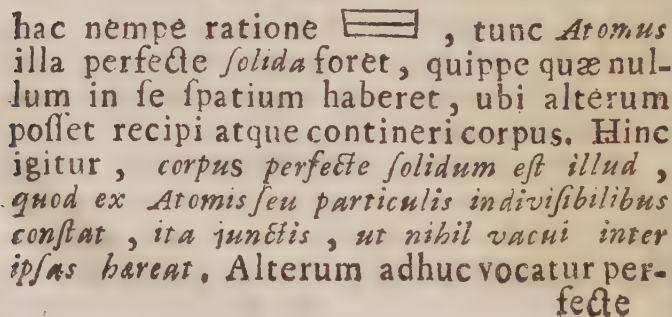 hac nempè ratione , tunc Atomus
illa perfecte ſolida foret, quippe quæ nul-
lum in ſe ſpatium haberet, ubi alterum
poſſet recipi atque contineri corpus. Hinc
igitur, corpus perfecte ſolidum eſt illud,
quod ex Atomis ſeu particulis indiviſibilibus
conſtat, ita junctis, ut nihil vacui inter
ipſas hæreat. Alterum adhuc vocatur per-
fecte